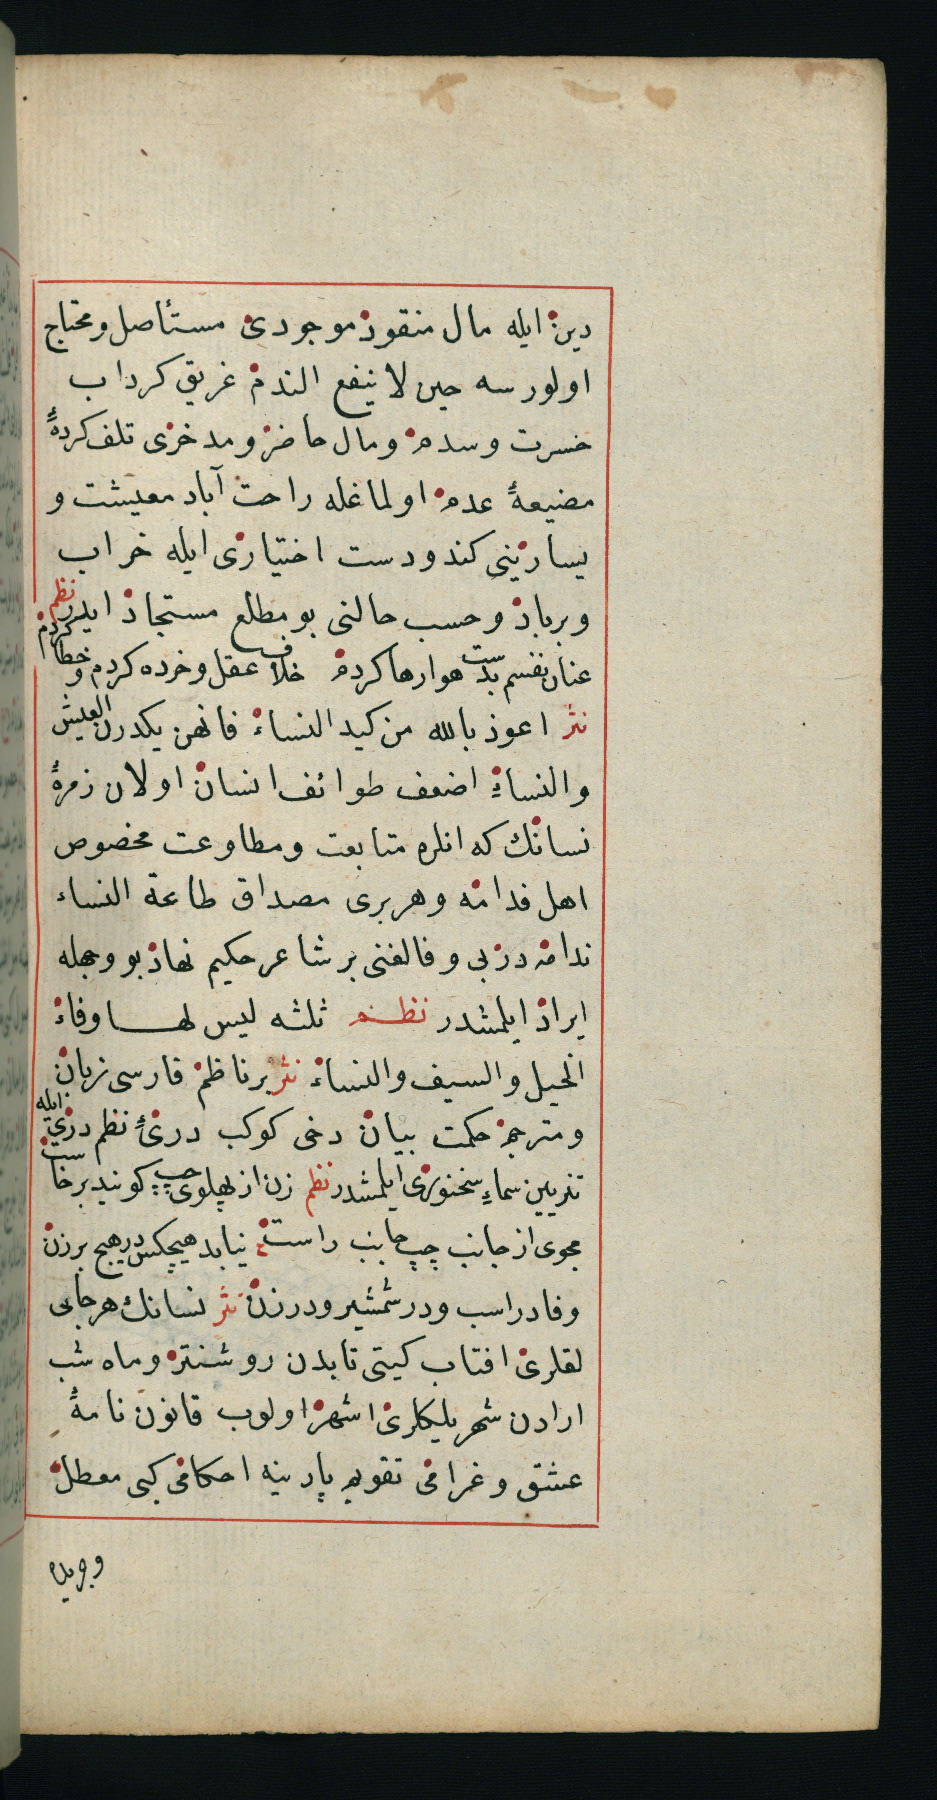 دین ایله مال منقود موجودی مستأصل ومحتاج
اولورسه حین لا ینفع الندم غریق کرداب
خسرت وسدم ومال حاضر ومدخری تلف کردهٔ
مضیعهٔ عدم اولماغله راحت آباد معیشت و
یسارینی کندو دست اختیاری ایله خراب
وبرباد وحسب حالنی بو مطلع مستجاد ایدر نظم
عنان نفسم بدست هوا رها کردم خلاف عقل وخرده کردم وخطا کردم
نثر اعوذ بالله من کید النساء فانهن یکدرن العیش
والنساء اضعف طوائف انسان اولان زمرهٔ
نسانك که انلره متابعت ومطاوعت مخصوص
اهل فدامه وهر بری مصداق طاعة النساء
ندامه در بی وفالغنی بر شاعر حکیم نهاد بو وجهله
ایراد ایلمشدر نظم ثلثه لیس لها وفاء
الخیل والسیف والنساء نثر بر ناظم فارسی زبان
ومترجم حکمت بیان دخی کوکب درئ نظم دری ایله
تزیین سماء سخنوری ایلمشدر نظم زن از پهلوی چپ کویند برخاست
مجوی از جانب چپ جانب راست نیابد هیچکس در هیچ برزن
وفا در اسب ودر شمشیر ودر زن نثر نسانك هرجایی
لقلری افتاب کیتی تابدن روشنتر وماه شب
ارادن شهر بلیکلری اشهر اولوب قانون نامهٔ
عشق وغرامی تقویم پارینه احکامی کبی معطل